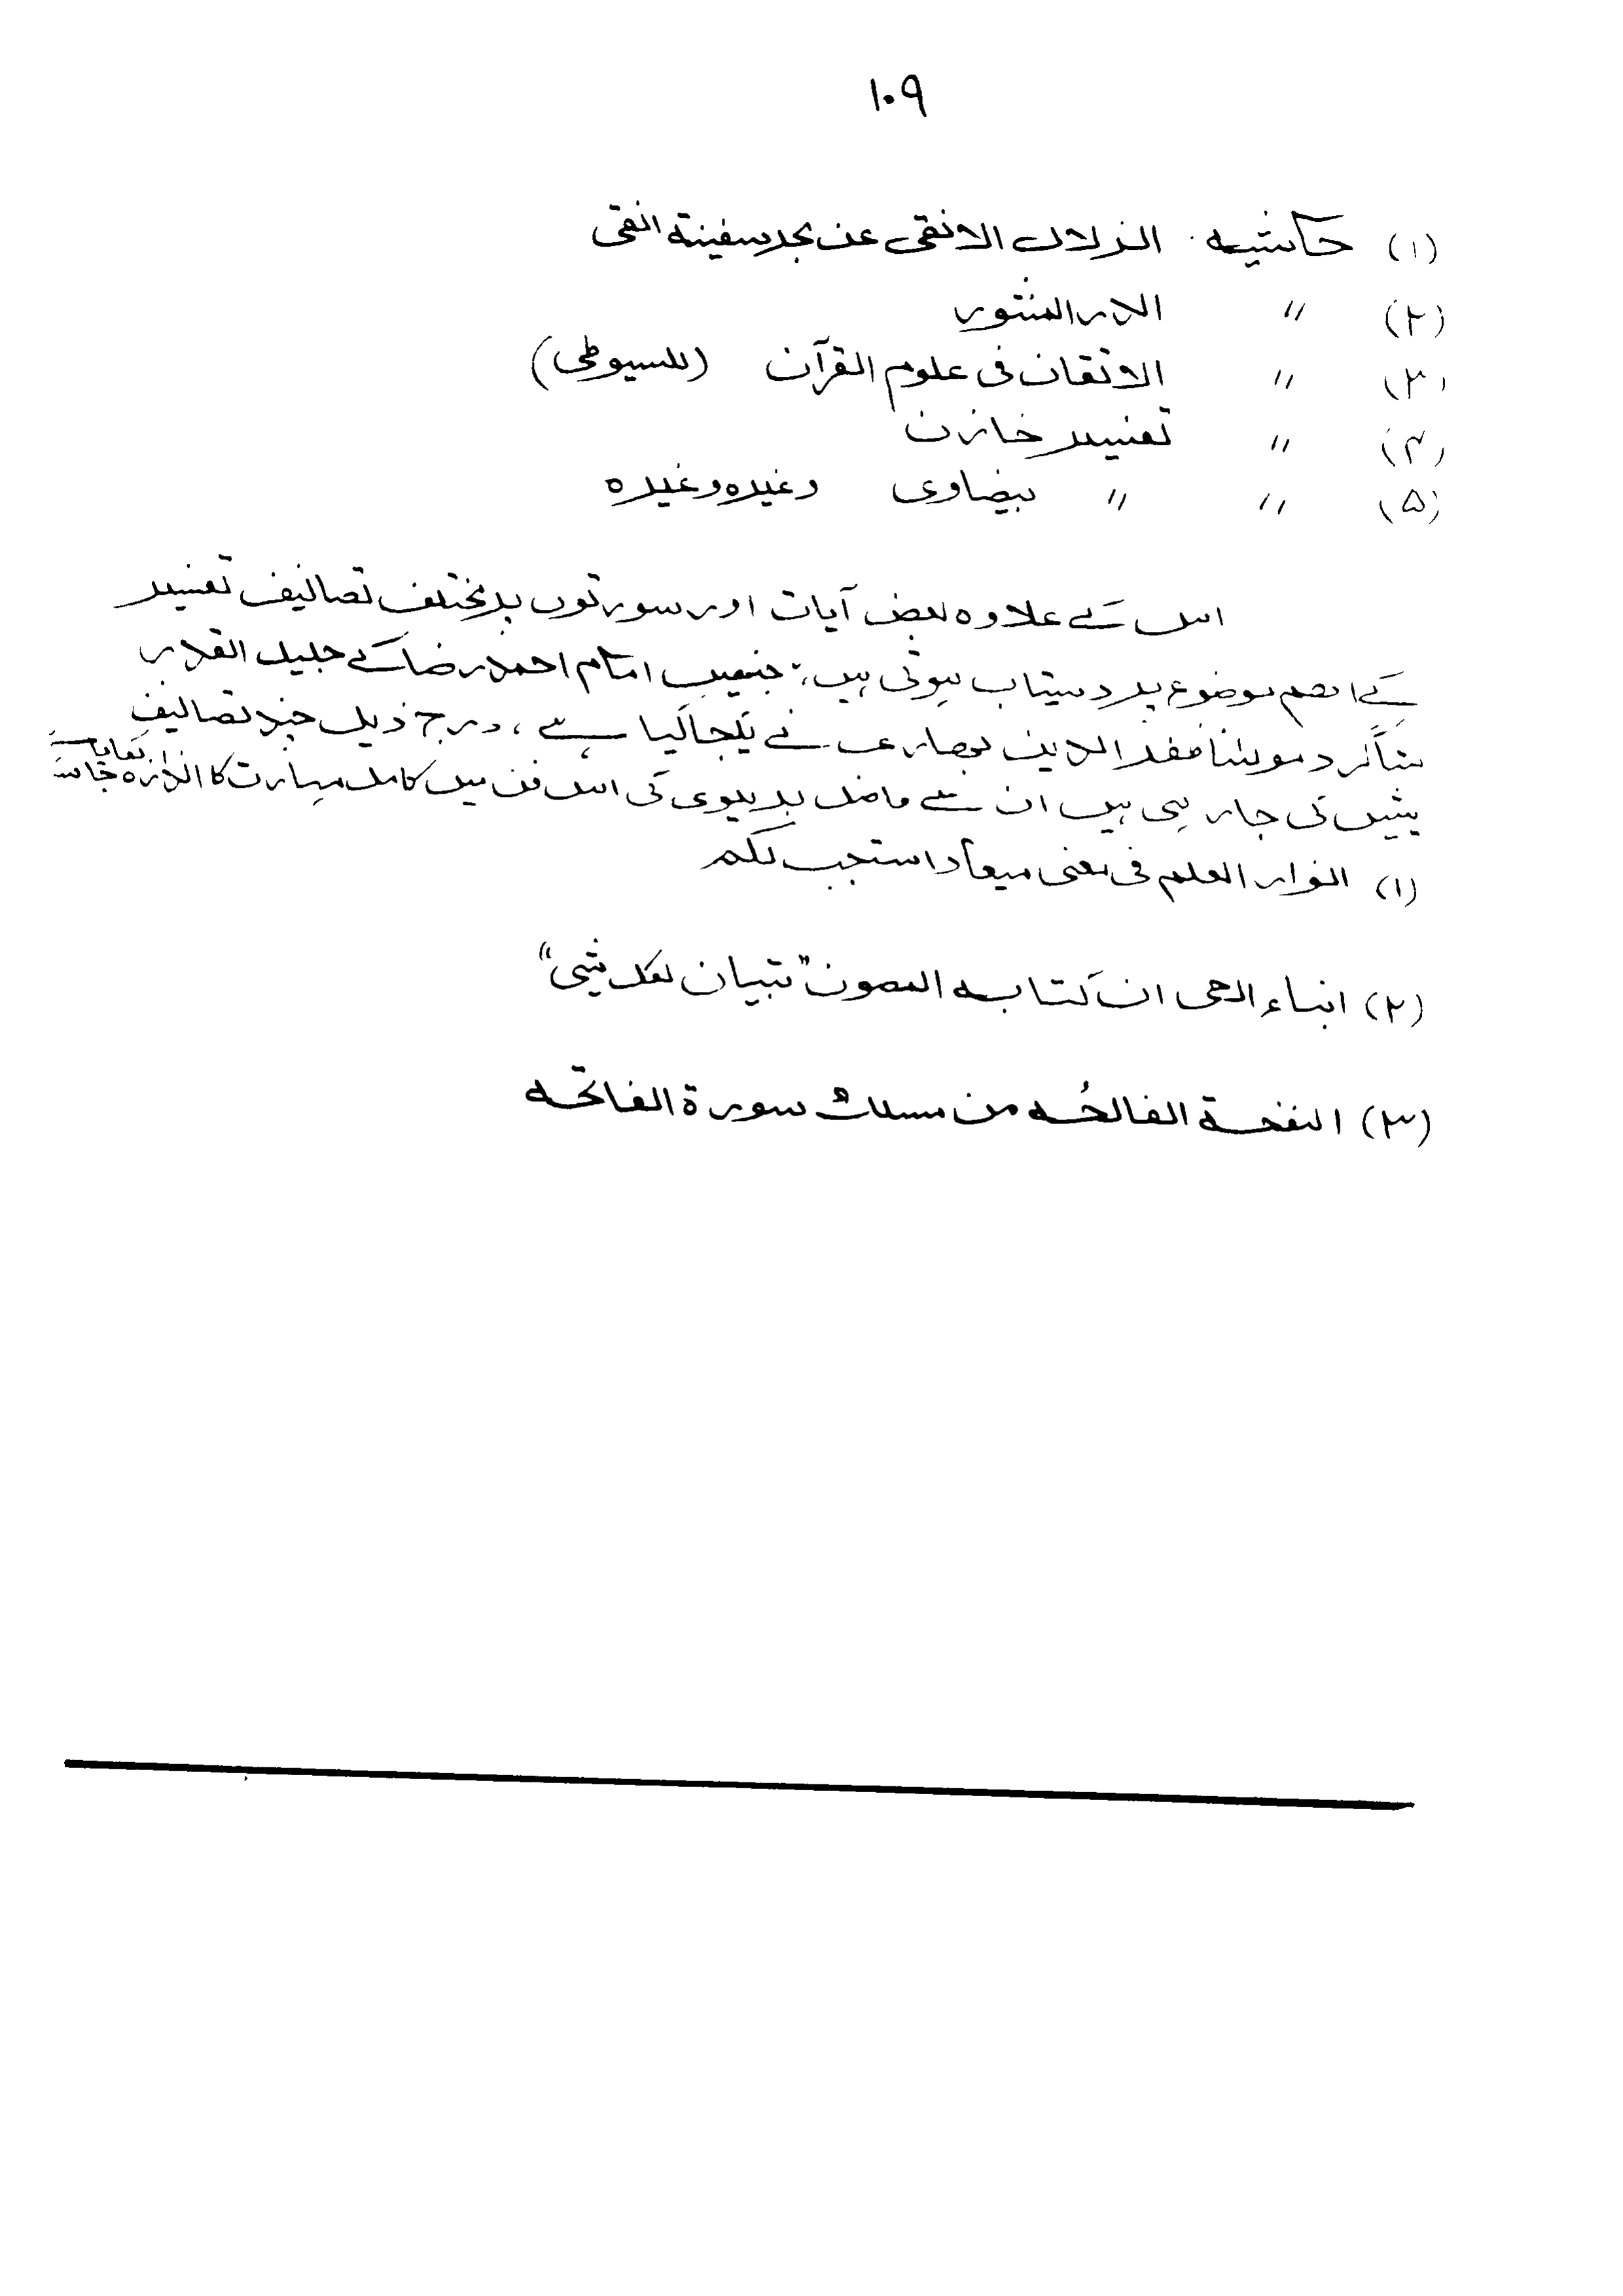 ۱۰۹
(۱) حاشیہ الزلال الانقی عن بحر سفینة اتقی
(۲) " الدر المنثور
(۳) " الاتقان فی علوم القرآن (للسیوطی)
(۴) " تفسیر خازن
(۵) " " بیضاوی وغیرہ وغیرہ
اس کے علاوہ بعض آیات اور سورتوں پر مختلف تصانیف تفسیر
کے اہم موضوع پر دستیاب ہوئی ہیں، جنھیں امام احمد رضا کے جلیل القدر
شاگرد مولٰنا ظفر الدین بہاری نے یکجا کیا ہے، درج ذیل چند تصانیف
پیش کی جا رہی ہیں ان سے فاضل بریلوی کی اس فن میں کامل مہارت کا اندازہ لگایا جا سکتا
(۱) انوار العلم فی معنی میعاد استجب لکم
(۲) انباء الحی ان کتابہ المصون "تبیان لکل شیی"
(۳) النفحۃ الفائحہ من مسک سورۃ الفاتحہ